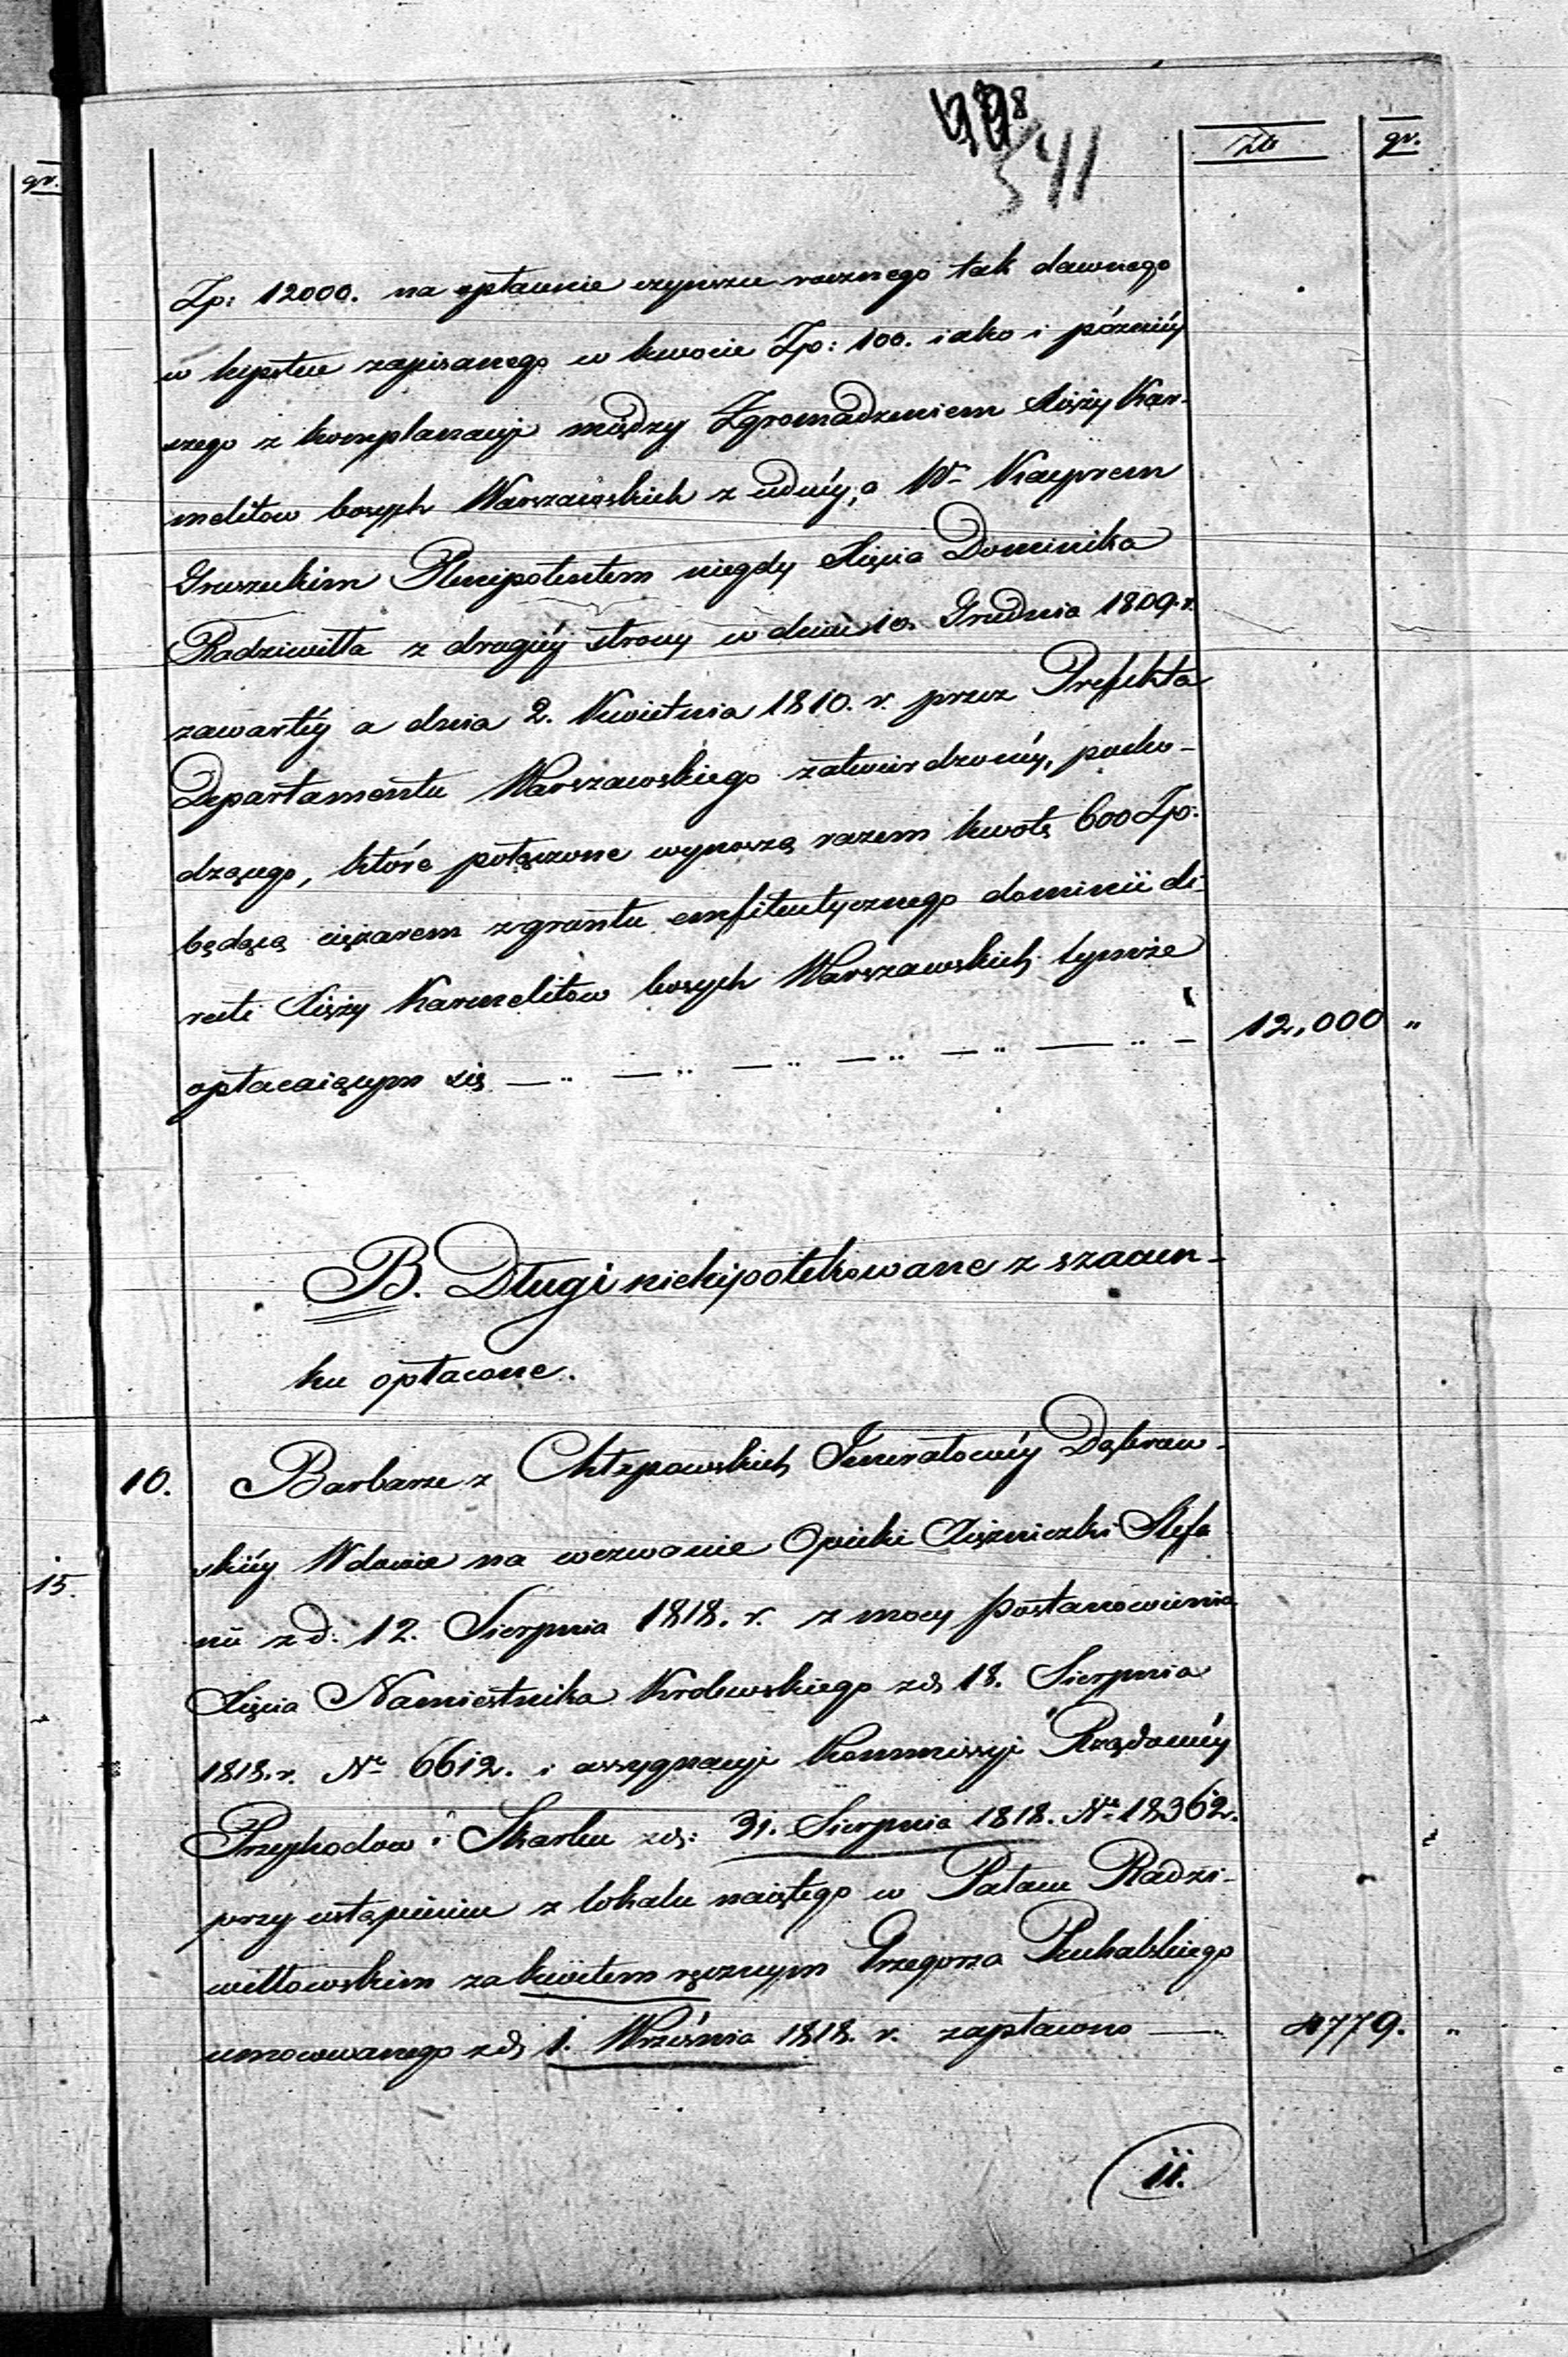 541
Złt gr.
gr.
Zp: 12000. na opłacenie czynszu rocznego tak dawnego
w kupstwie zapisanego w kwocie Zp: 100. iako i późniéy
szego z komplanacyi między Zgromadzeniem Xięży Kar-
melitow bosych Warszawskich z iednéy, a Wm Kacprem
Gruszeckim Plenipotentem niegdy Xięcia Dominika
Radziwiłła z drugiéy strony w dniu 10. Grudnia 1809. r.
zawartéy a dnia 2. Kwietnia 1810. r. przez Prefekta
Departamentu Warszawskiego zatwierdzonéy, pocho-
dzącego, które połączone wynoszą razem kwotę 600 Zp:
będącą ciężarem z gruntu emfiteutycznego dominii di-
recti Xięży Karmelitow bosych Warszawskich tymże
opłacaiącym się — „ — „ — „ — „ — „ — „ — 12,000 „
B. Długi niehipotekowane z szacun-
ku opłacone.
10. Barbarze z Chłapowskich Jenerałowéy Dąbrow-
skiéy Wdowie na wezwanie Opieki Xiężniczki Stefa
nii z d: 12. Sierpnia 1818. r. z mocy postanowienia
15.
Xięcia Namiestnika Krolewskiego z d. 18. Sierpnia
1818. r. Nr 6612. i assygnacyi Kommissyi Rządowéy
Przychodow i Skarbu z d: 31. Sierpnia 1818. Nr 18362.
przy ustąpieniu z lokalu naiętego w Pałacu Radzi-
wiłłowskim za kwitem ręcznym Grzegorza Puchalskiego
umocowanego z d. 1. Września 1818. r. zapłacono — 4779. „
11.